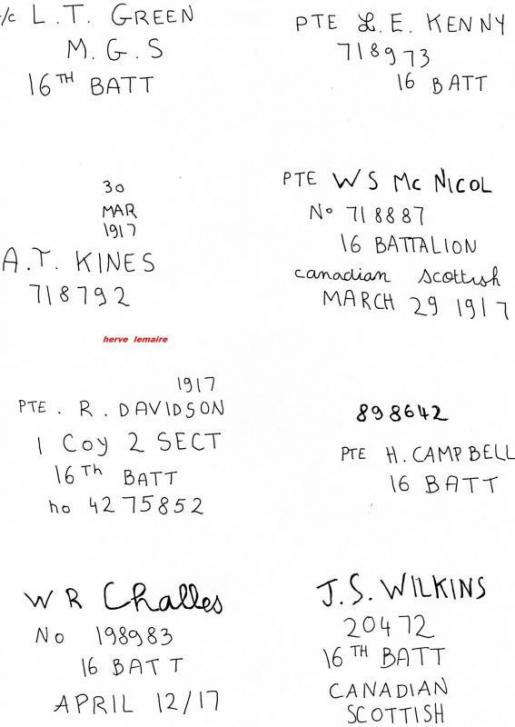 L/c L. T. GREEN
M. G. S
16TH BATT
PTE L. E. KENNY
718973
16 BATT
30
MAR
1917
A. T. KINES
718792
PTE W S Mc NICOL
No 718887
16 BATTALION
canadian scottish
MARCH 29 1917
herve lemaire
1917
PTE. R. DAVIDSON
1 Coy 2 SECT
16Th BATT
no 4275852
898642
PTE H. CAMPBELL
16 BATT
W R Challes
No 198983
16 BATT
APRIL 12/17
J. S. WILKINS
20472
16TH BATT
CANADIAN
SCOTTISH